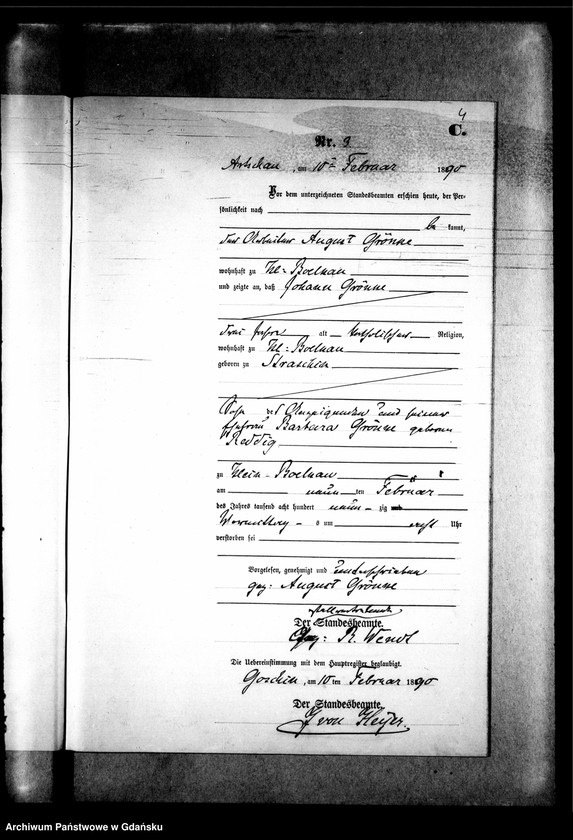 4
C.
Nr. 3
Artschau, am 10ten Februar 1890
Vor dem unterzeichneten Standesbeamten erschien heute, der Per-
sönlichkeit nach
be kannt,
der Arbeiter August Grönke
wohnhaft zu Kl: Boelkau
und zeigte an, daß Johann Grönke
drei Jahre alt katholischer Religion,
wohnhaft zu Kl: Boelkau
geboren zu Straschin
Sohn des Anzeigenden und seiner
Ehefrau Barbara Grönke geborene
Reddig
zu Klein-Boelkau
am neun ten Februar
des Jahres tausend acht hundert neun zig
Vormittag s um acht Uhr
verstorben sei
Vorgelesen, genehmigt und unterschrieben
gez: August Grönke
stellvertretende
Der Standesbeamte.
Gez: R. Wendt
Die Uebereinstimmung mit dem Hauptregister beglaubigt.
Goschin, am 10 ten Februar 1890
Der Standesbeamte.
von Heyer.
Archiwum Państwowe w Gdańsku